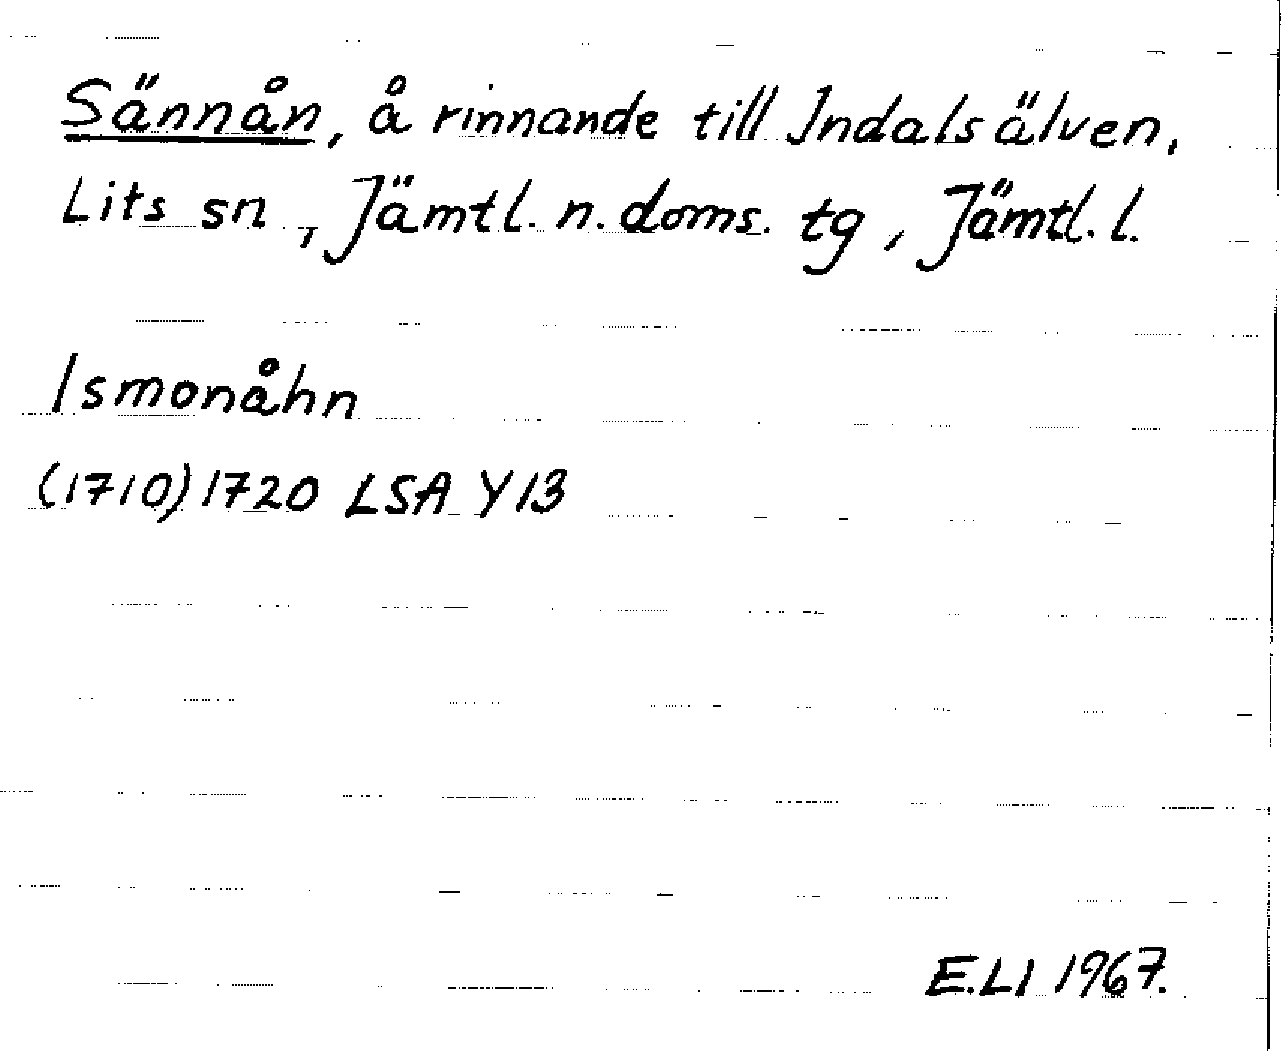 Sännån, å rinnande till Indalsälven,
Lits sn, Jämtl. n. doms. tg, Jämtl. l.
Ismonåhn
(1710) 1720 LSA Y13
E.LI 1967.